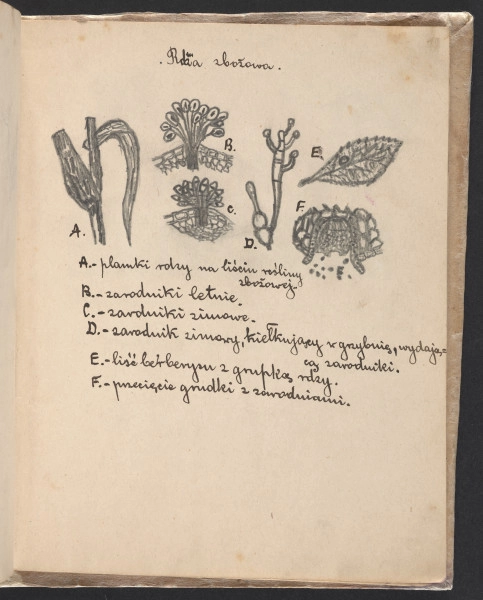 . Rdza zbożowa.
B.
E.
C.
F.
A.
D.
F.
A.- plamki rdzy na liściu rośliny
zbożowej.
B.- zarodniki letnie.
C.- zarodniki zimowe.
D.- zarodnik zimowy, kiełkujący w grzybnię, wydają=
cą zarodniki.
E.- liść berberysu z grupką rdzy.
F.- przecięcie grudki z zarodniami.